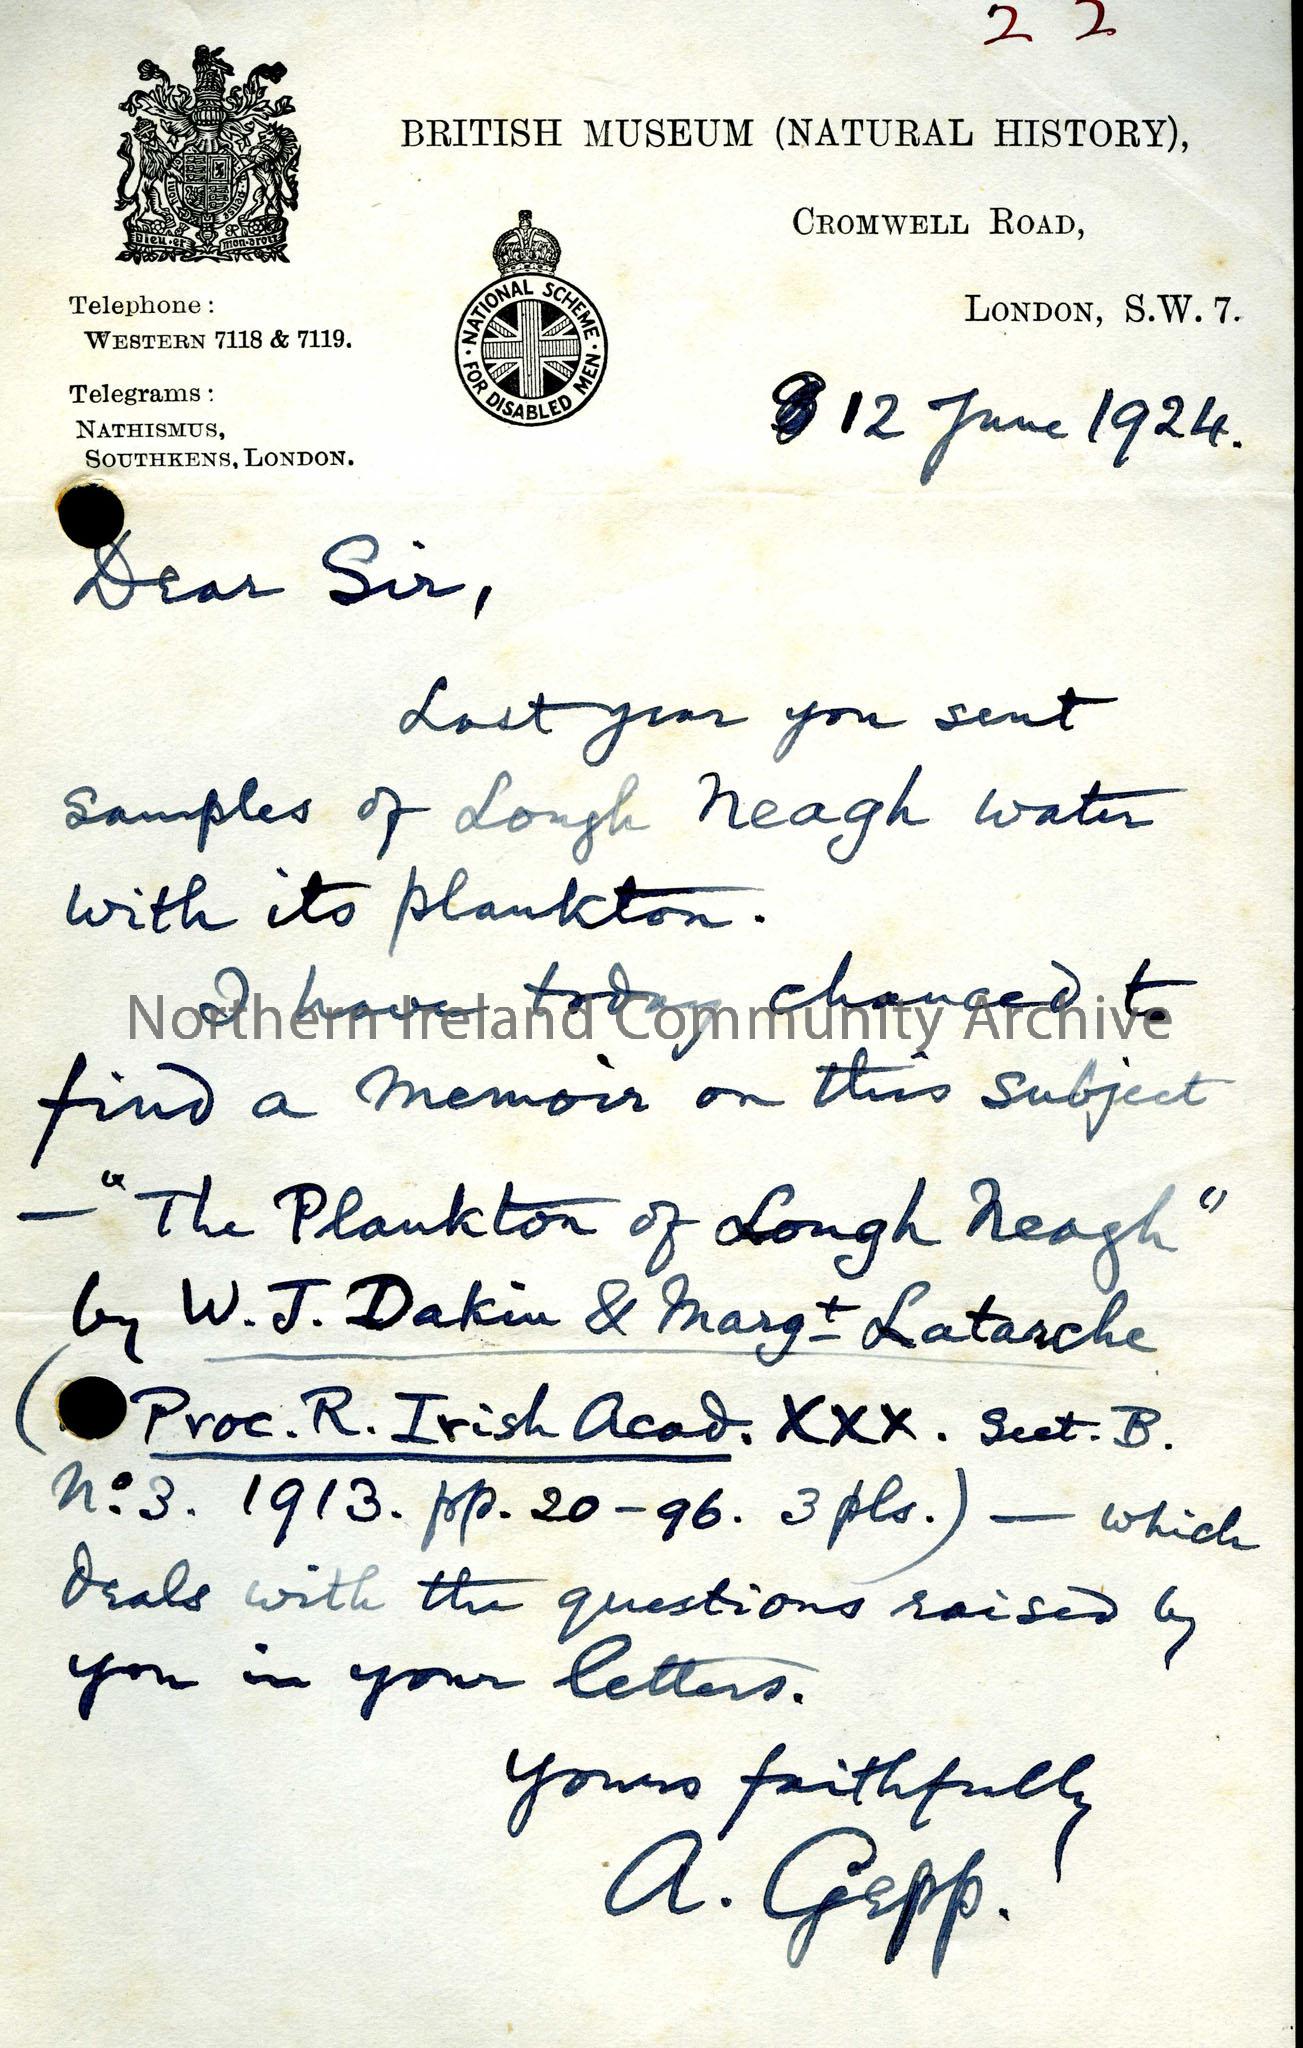 22
BRITISH MUSEUM (NATURAL HISTORY),
CROMWELL ROAD,
LONDON, S.W. 7.
Dieu et mon droit
Telephone:
WESTERN 7118 & 7119.
Telegrams:
NATHISMUS,
SOUTHKENS, LONDON.
NATIONAL SCHEME · FOR DISABLED MEN ·
12 June 1924.
Dear Sir,
Last year you sent
samples of Lough Neagh water
with its plankton.
I have today chanced to
find a memoir on this subject
— "The Plankton of Lough Neagh"
by W. J. Dakin & Margt Latarche
(Proc. R. Irish Acad. XXX. Sect. B.
No. 3. 1913. pp. 20–96. 3 pls.) — which
deals with the questions raised by
you in your letters.
Yours faithfully
A. Gepp.
Northern Ireland Community Archive